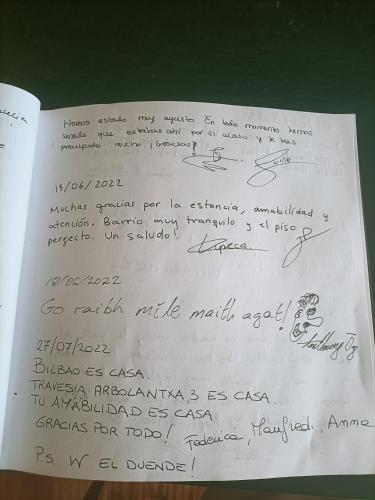 Hemos estado muy agusto En todo momento hemos
sentido que estabas ahí por si acaso y te has
preocupado mucho. ¡Gracias!
13/06/2022
Muchas gracias por la estancia, amabilidad y
atención. Barrio muy tranquilo y el piso
perfecto. Un saludo!
18/06/2022
Go raibh míle maith agat!
27/07/2022
BILBAO ES CASA.
TRAVESIA ARBOLANTXA, 3 ES CASA.
TU AMABILIDAD ES CASA
GRACIAS POR TODO! Federica, Manfredi, Anna
P.S. W EL DUENDE!